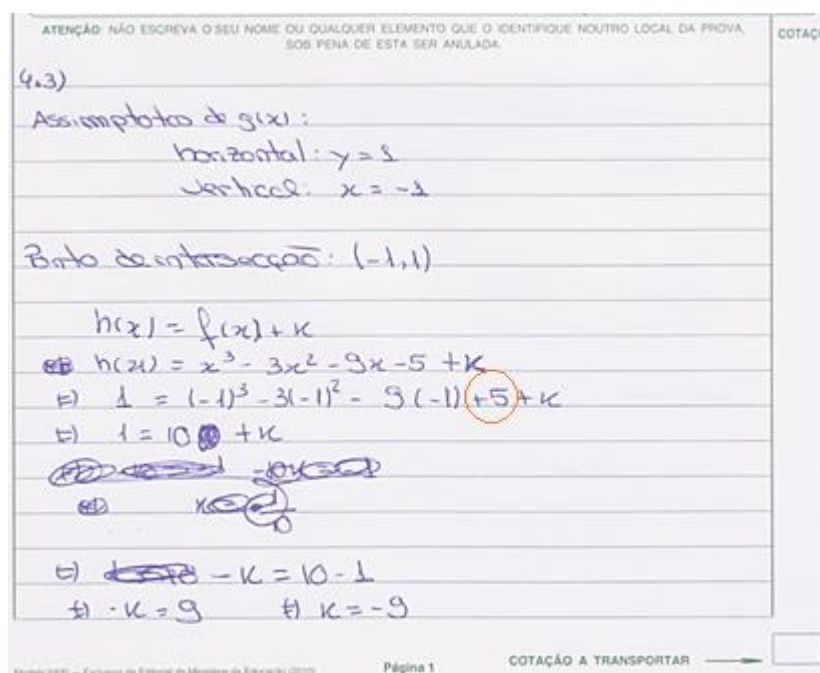 ATENÇÃO: NÃO ESCREVA O SEU NOME OU QUALQUER ELEMENTO QUE O IDENTIFIQUE NOUTRO LOCAL DA PROVA,
SOB PENA DE ESTA SER ANULADA.
COTAÇ
4.3)
Assimptotas de g(x):
horizontal: y = 1
vertical: x = -1
Ponto de intersecção: (-1,1)
h(x) = f(x) + k
h(x) = x³ - 3x² - 9x - 5 + k
⇔ 1 = (-1)³ - 3(-1)² - 9(-1) + 5 + k
⇔ 1 = 10 + k
⇔ - k = 10 - 1
⇔ -k = 9 ⇔ k = -9
Página 1
COTAÇÃO A TRANSPORTAR